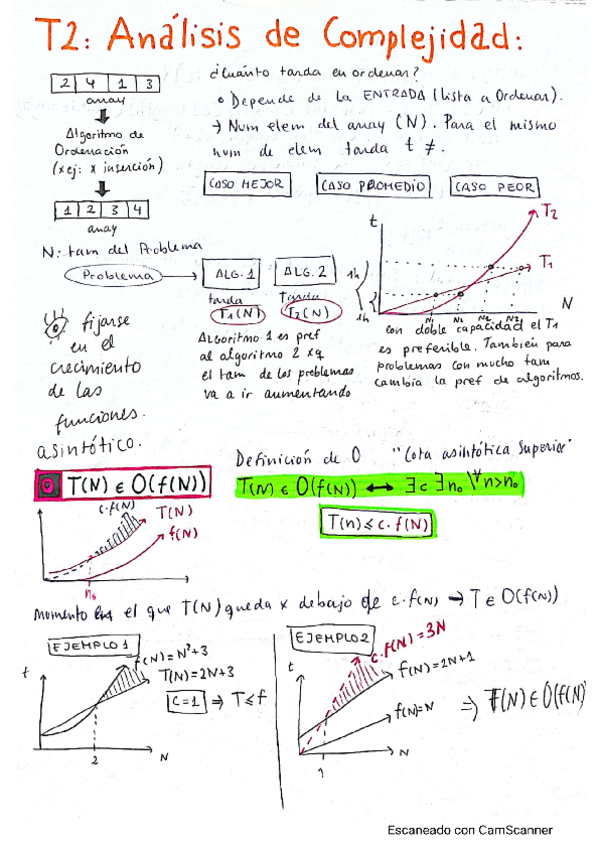 T2: Análisis de Complejidad:
2 4 1 3
array
Algoritmo de
Ordenación
(x ej: x inserción)
1 2 3 4
array
¿Cuánto tarda en ordenar?
Depende de la ENTRADA (lista a Ordenar).
→ Num elem del array (N). Para el mismo
num de elem tarda t ≠.
CASO MEJOR
CASO PROMEDIO
CASO PEOR
N: tam del Problema
Problema
ALG. 1
ALG. 2
tarda
T1(N)
Tarda
T2(N)
Algoritmo 1 es pref
al algoritmo 2 xq
el tam de los problemas
va a ir aumentando
t
T2
T1
1h
1h
N1 N1 N2 N2
N
con doble capacidad el T1
es preferible. También para
problemas con mucho tam
cambia la pref de algoritmos.
fijarse
en el
crecimiento
de las
funciones.
asintótico.
T(N) ∈ O(f(N))
Definición de O "Cota asintótica superior"
T(N) ∈ O(f(N)) ↔ ∃c ∃n₀ \∀n>n₀
T(n) ≤ c.f(N)
c.f(N)
T(N)
f(N)
n₀
Momento en el que T(N) queda x debajo de c.f(N) → T ∈ O(f(N))
EJEMPLO 1
t
f(N)=N²+3
T(N)=2N+3
C=1 ⇒ T≤f
2
N
EJEMPLO 2
t
c.f(N)=3N
f(N)=2N+1
f(N)=N
⇒ T(N) ∈ O(f(N)
1
N
Escaneado con CamScanner